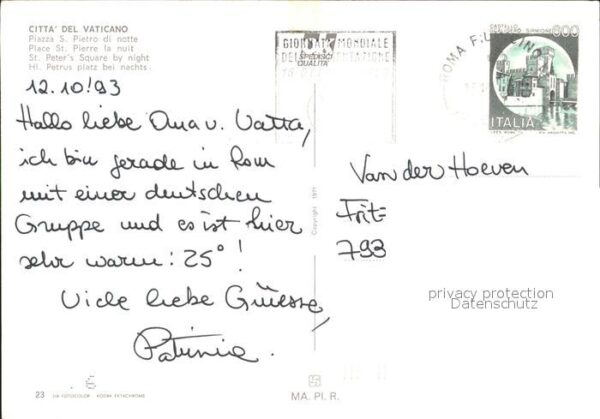 CITTA' DEL VATICANO
Piazza S. Pietro di notte
Place St. Pierre la nuit
St. Peter's Square by night
Hl. Petrus platz bei nachts
12.10!93
Hallo liebe Oma u. Vatta,
ich bin gerade in Rom
mit einer deutschen
Gruppe und es ist hier
sehr warm: 25°!
Viele liebe Grüesse,
Patrizia.
23
KODAK EKTACHROME
Copyright 1971
MA. PI. R.
GIORNATA MONDIALE
ROMA
600
ITALIA
Van der Hoeven
Frits
793
privacy protection
Datenschutz